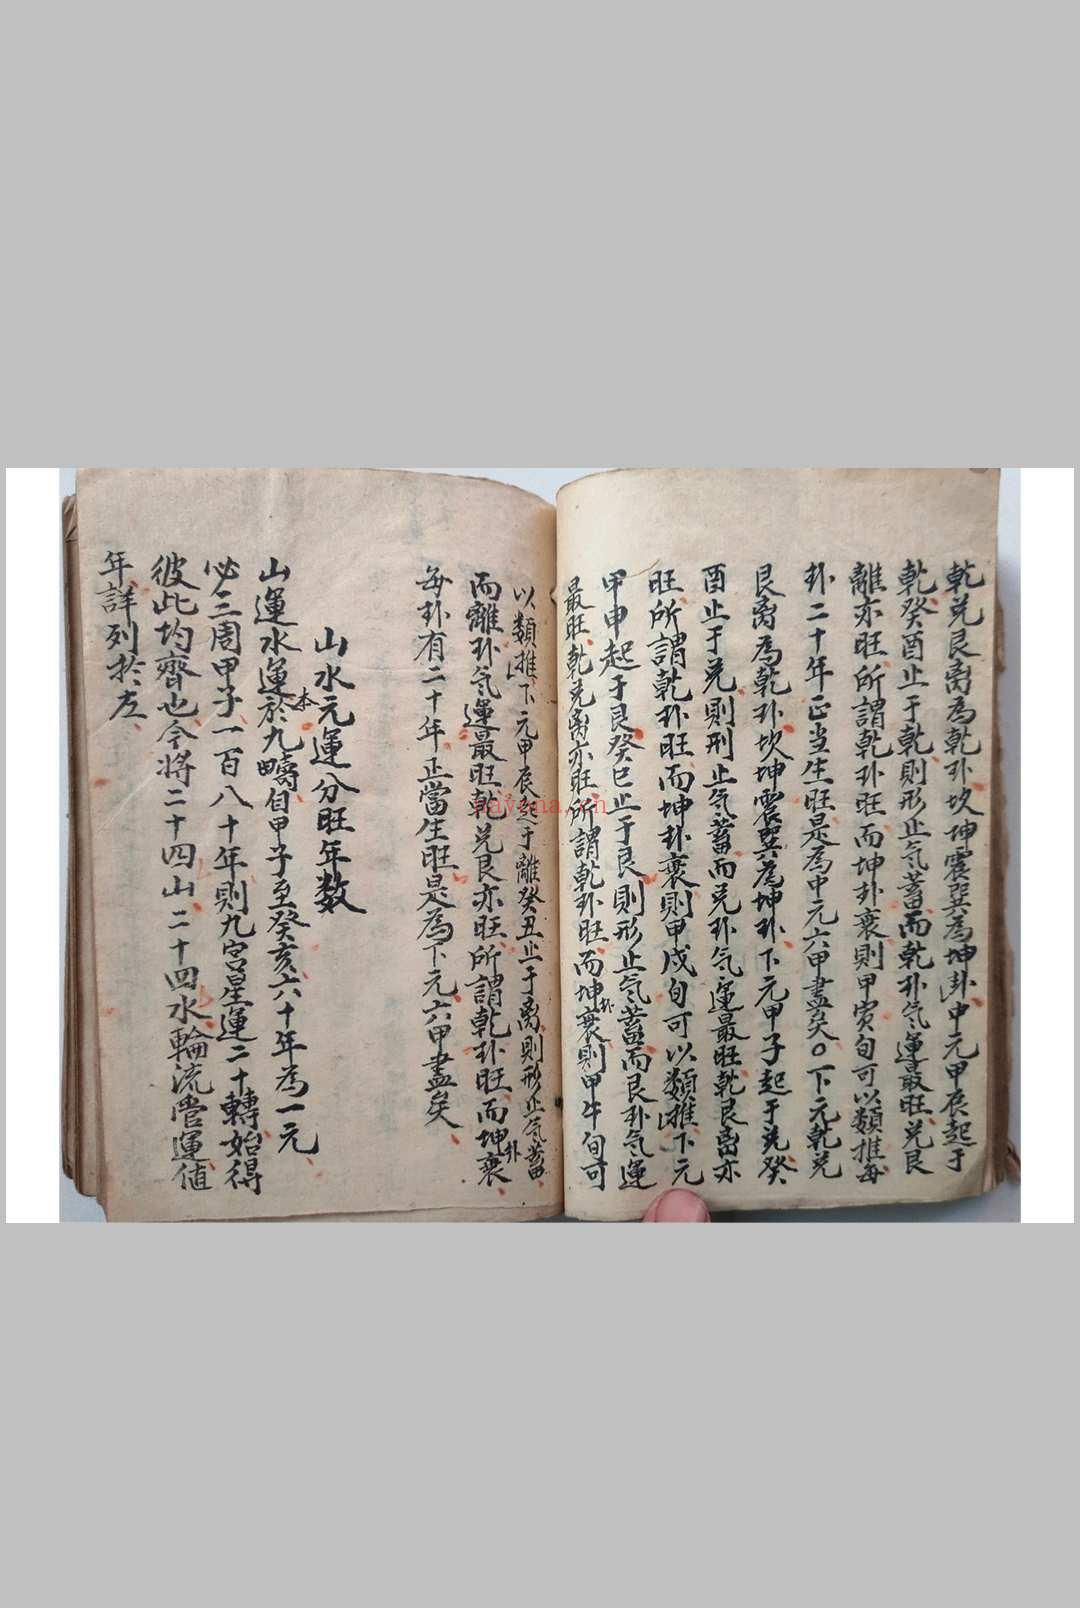 乾兑艮离為乾卦坎坤震巽為坤卦中元甲辰起于
乾癸酉止于乾則形止氣蓄而乾卦氣運最旺兑艮
離亦旺所謂乾卦旺而坤卦衰則甲寅旬可以類推每
卦二十年正当生旺是為中元六甲盡矣〇下元乾兑
艮离為乾卦坎坤震巽為坤卦下元甲子起于兑癸
酉止于兑則刑止氣蓄而兑卦氣運最旺乾艮离亦
旺所謂乾卦旺而坤卦衰則甲戍旬可以類推下元
甲申起于艮癸巳止于艮則形止氣蓄而艮卦氣運
最旺乾兑离亦旺所謂乾卦旺而坤卦衰則甲午旬可
以類推下元甲辰起于離癸丑止于离則形止氣蓄
而離卦氣運最旺乾兑艮亦旺所謂乾卦旺而坤卦衰
每卦有二十年正當生旺是為下元六甲盡矣
山水元運分旺年数
山運水運本於九疇自甲子至癸亥六十年為一元
必三周甲子一百八十年則九宮星運二十轉始得
彼此均齊也今將二十四山二十四水輪流當運值
年詳列於左